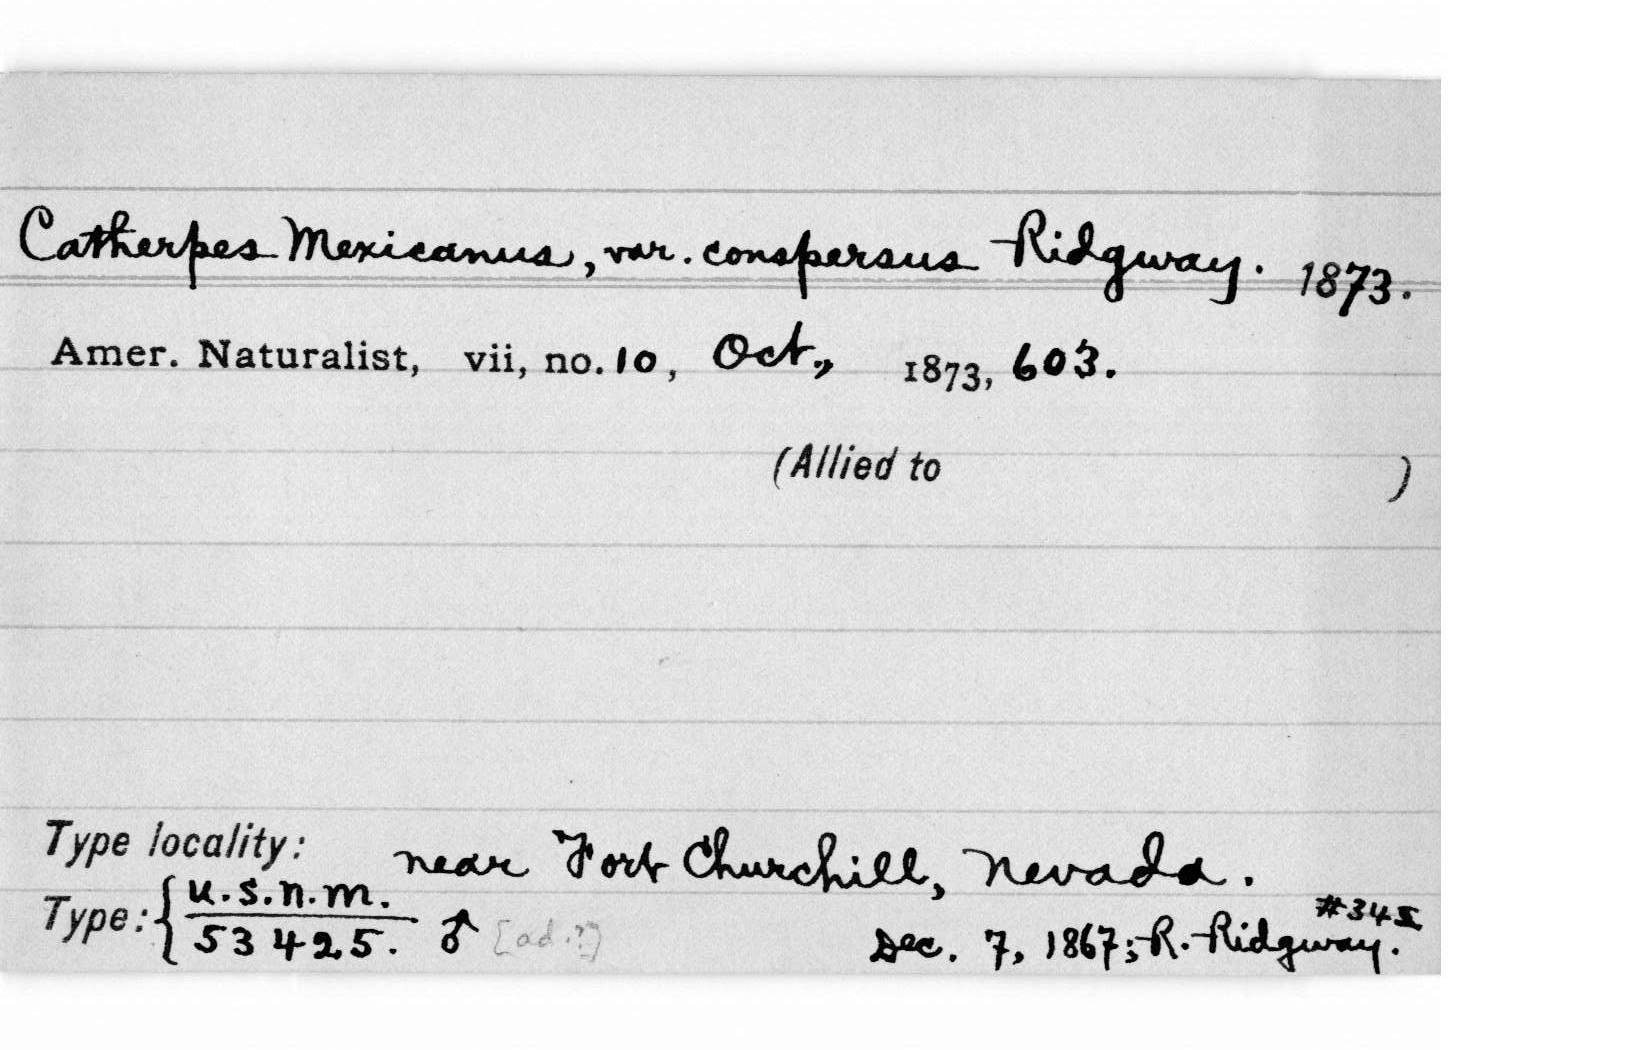 Catherpes Mexicanus, var. conspersus Ridgway. 1873.
Amer. Naturalist, vii, no. 10, Oct., 1873, 603.
(Allied to )
Type locality: near Fort Churchill, Nevada.
Type: { U.S.N.M.
53425. ♂ [ad.?]
#345
Dec. 7, 1867; R. Ridgway.